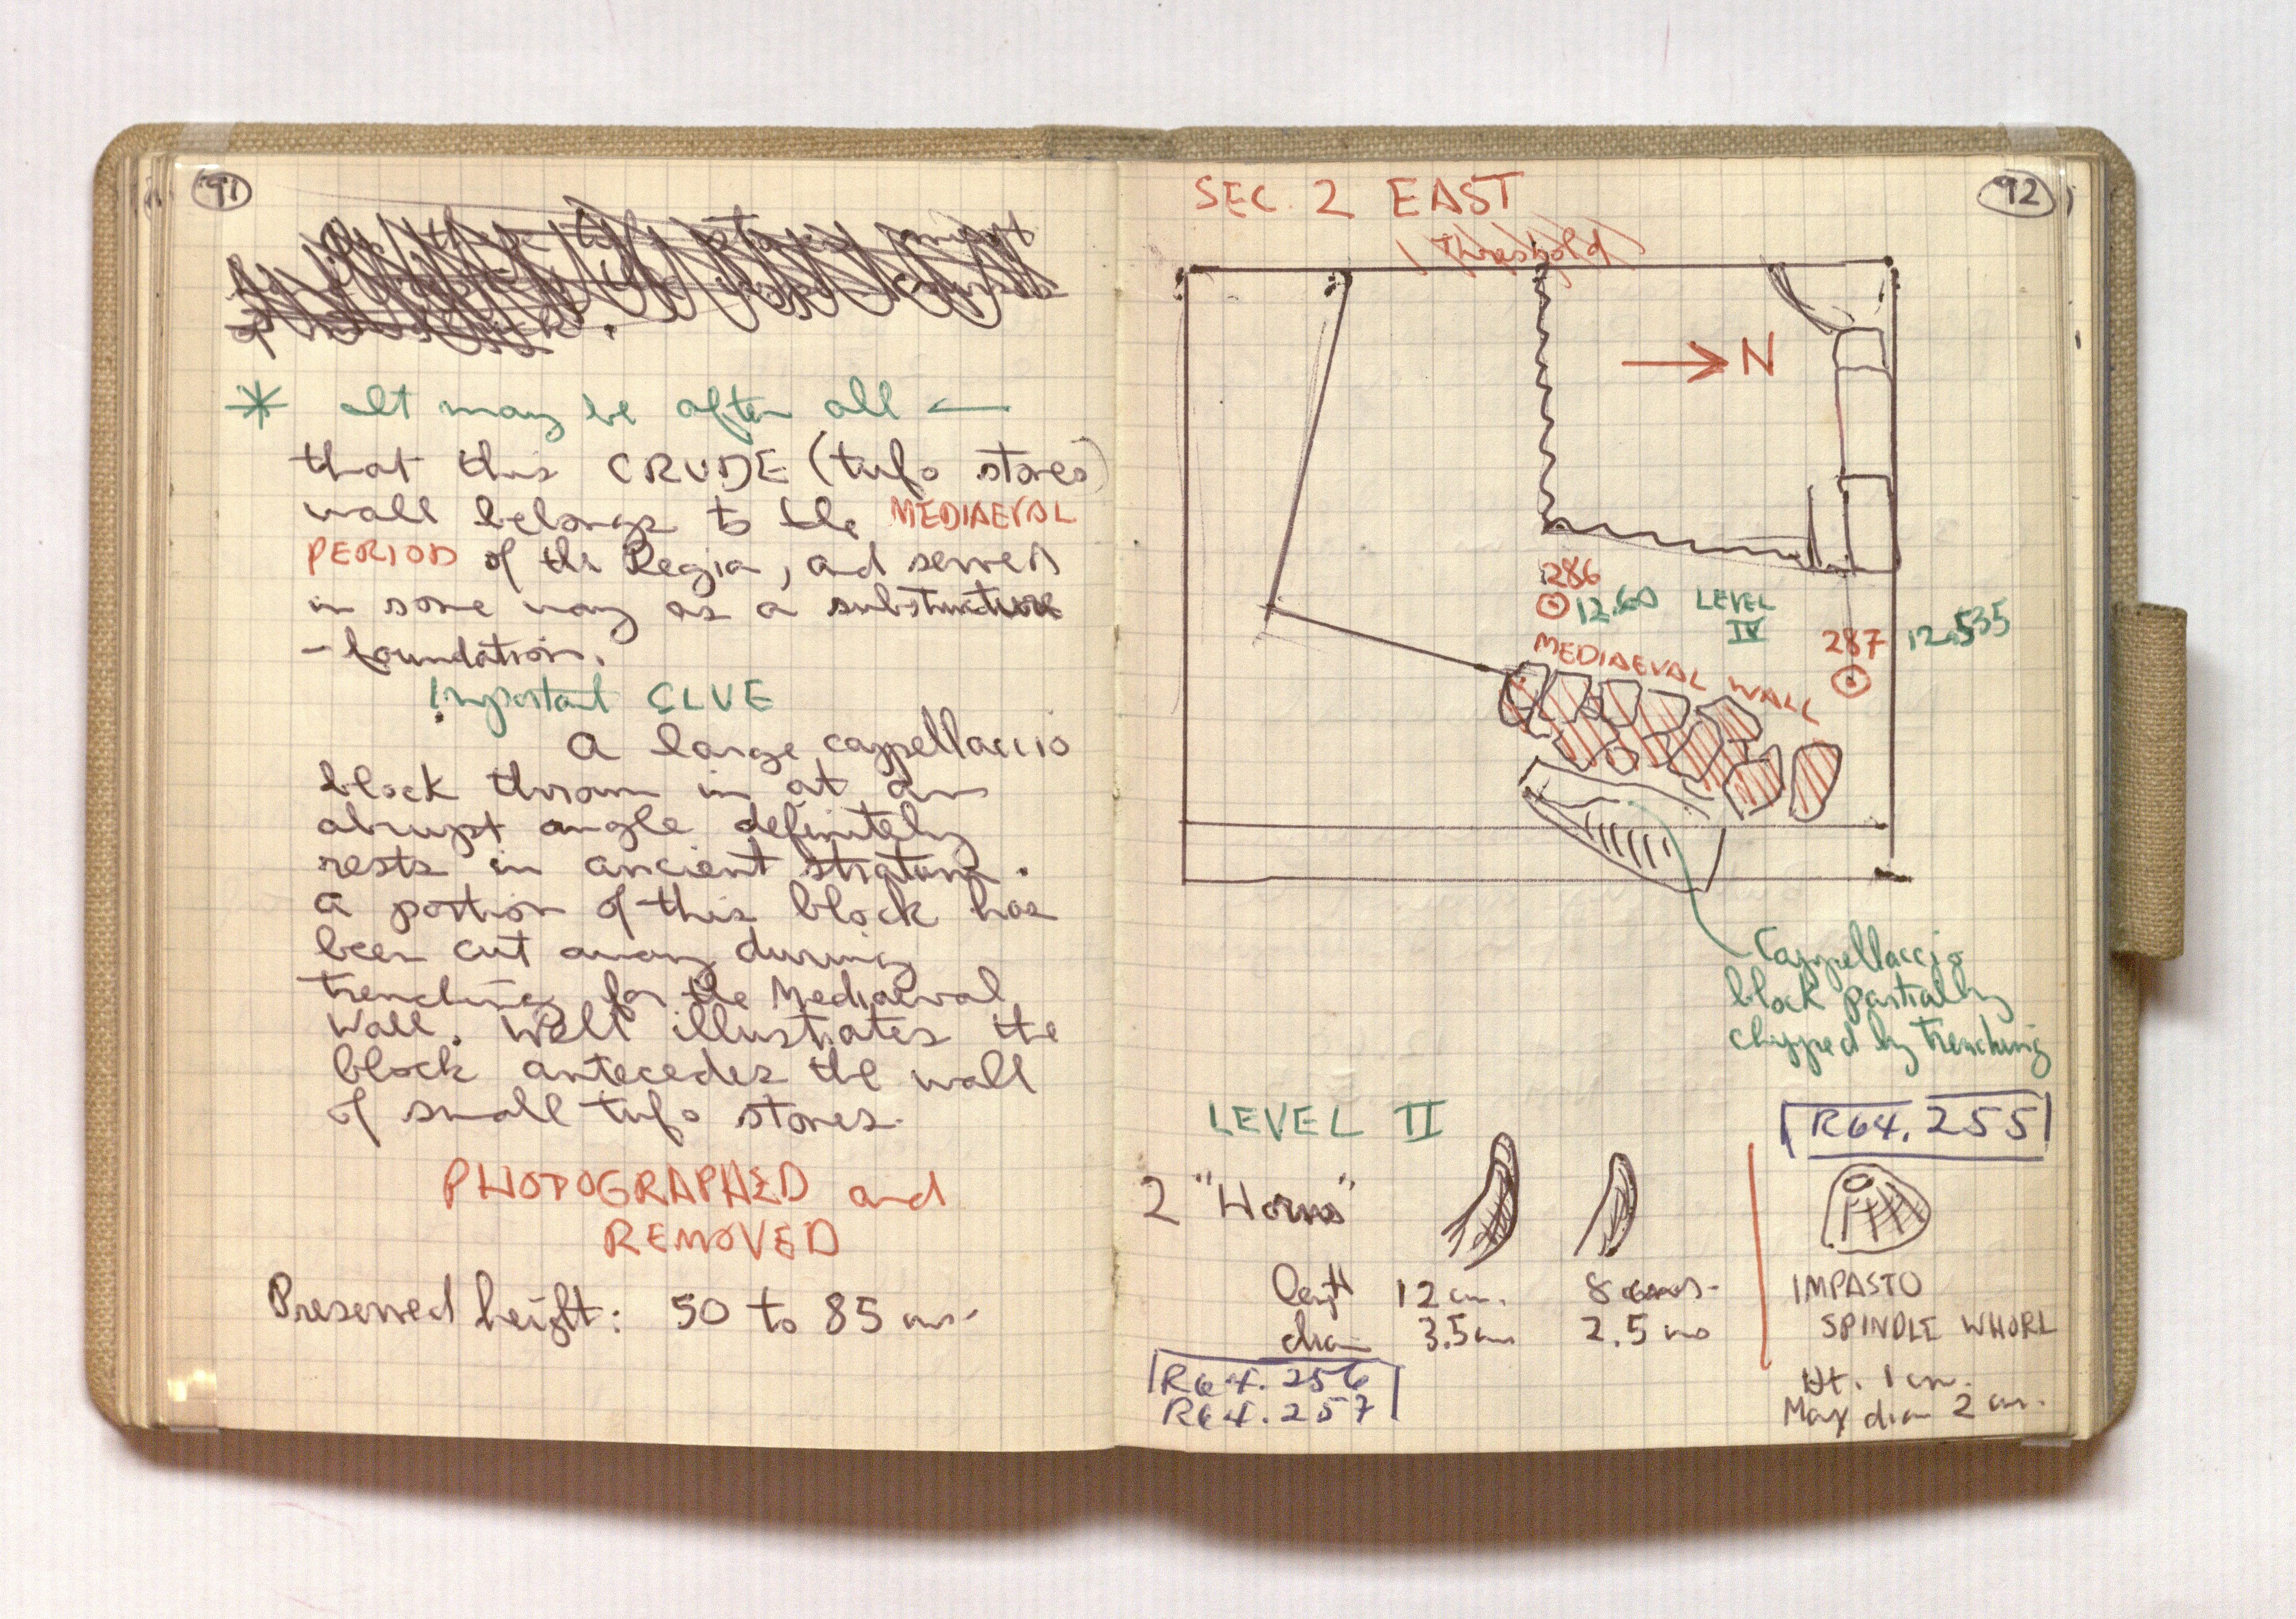 91
* It may be after all
that this CRUDE (tufo stones)
wall belongs to the MEDIAEVAL
PERIOD of the Regia, and serves
in some way as a substructure
- foundation.
Important CLUE
A large cappellaccio
block thrown in at an
abrupt angle definitely
rests in ancient stratum.
A portion of this block has
been cut away during
trenching for the Mediaeval
Wall. Well illustrates the
block antecedes the wall
of small tufo stones.
PHOTOGRAPHED and
REMOVED
Preserved height: 50 to 85 cms.
92
SEC. 2 EAST
Threshold
N
286
12.60 LEVEL
IV
287 12.535
MEDIAEVAL WALL
Cappellaccio
block partially
chipped by trenching
LEVEL II
R64.255
2 "Horns"
lengtH 12 cm. 8 cms.
diam 3.5 cm 2.5 cms
R64.256
R64.257
IMPASTO
SPINDLE WHORL
Ht. 1 cm.
Max diam 2 cm.